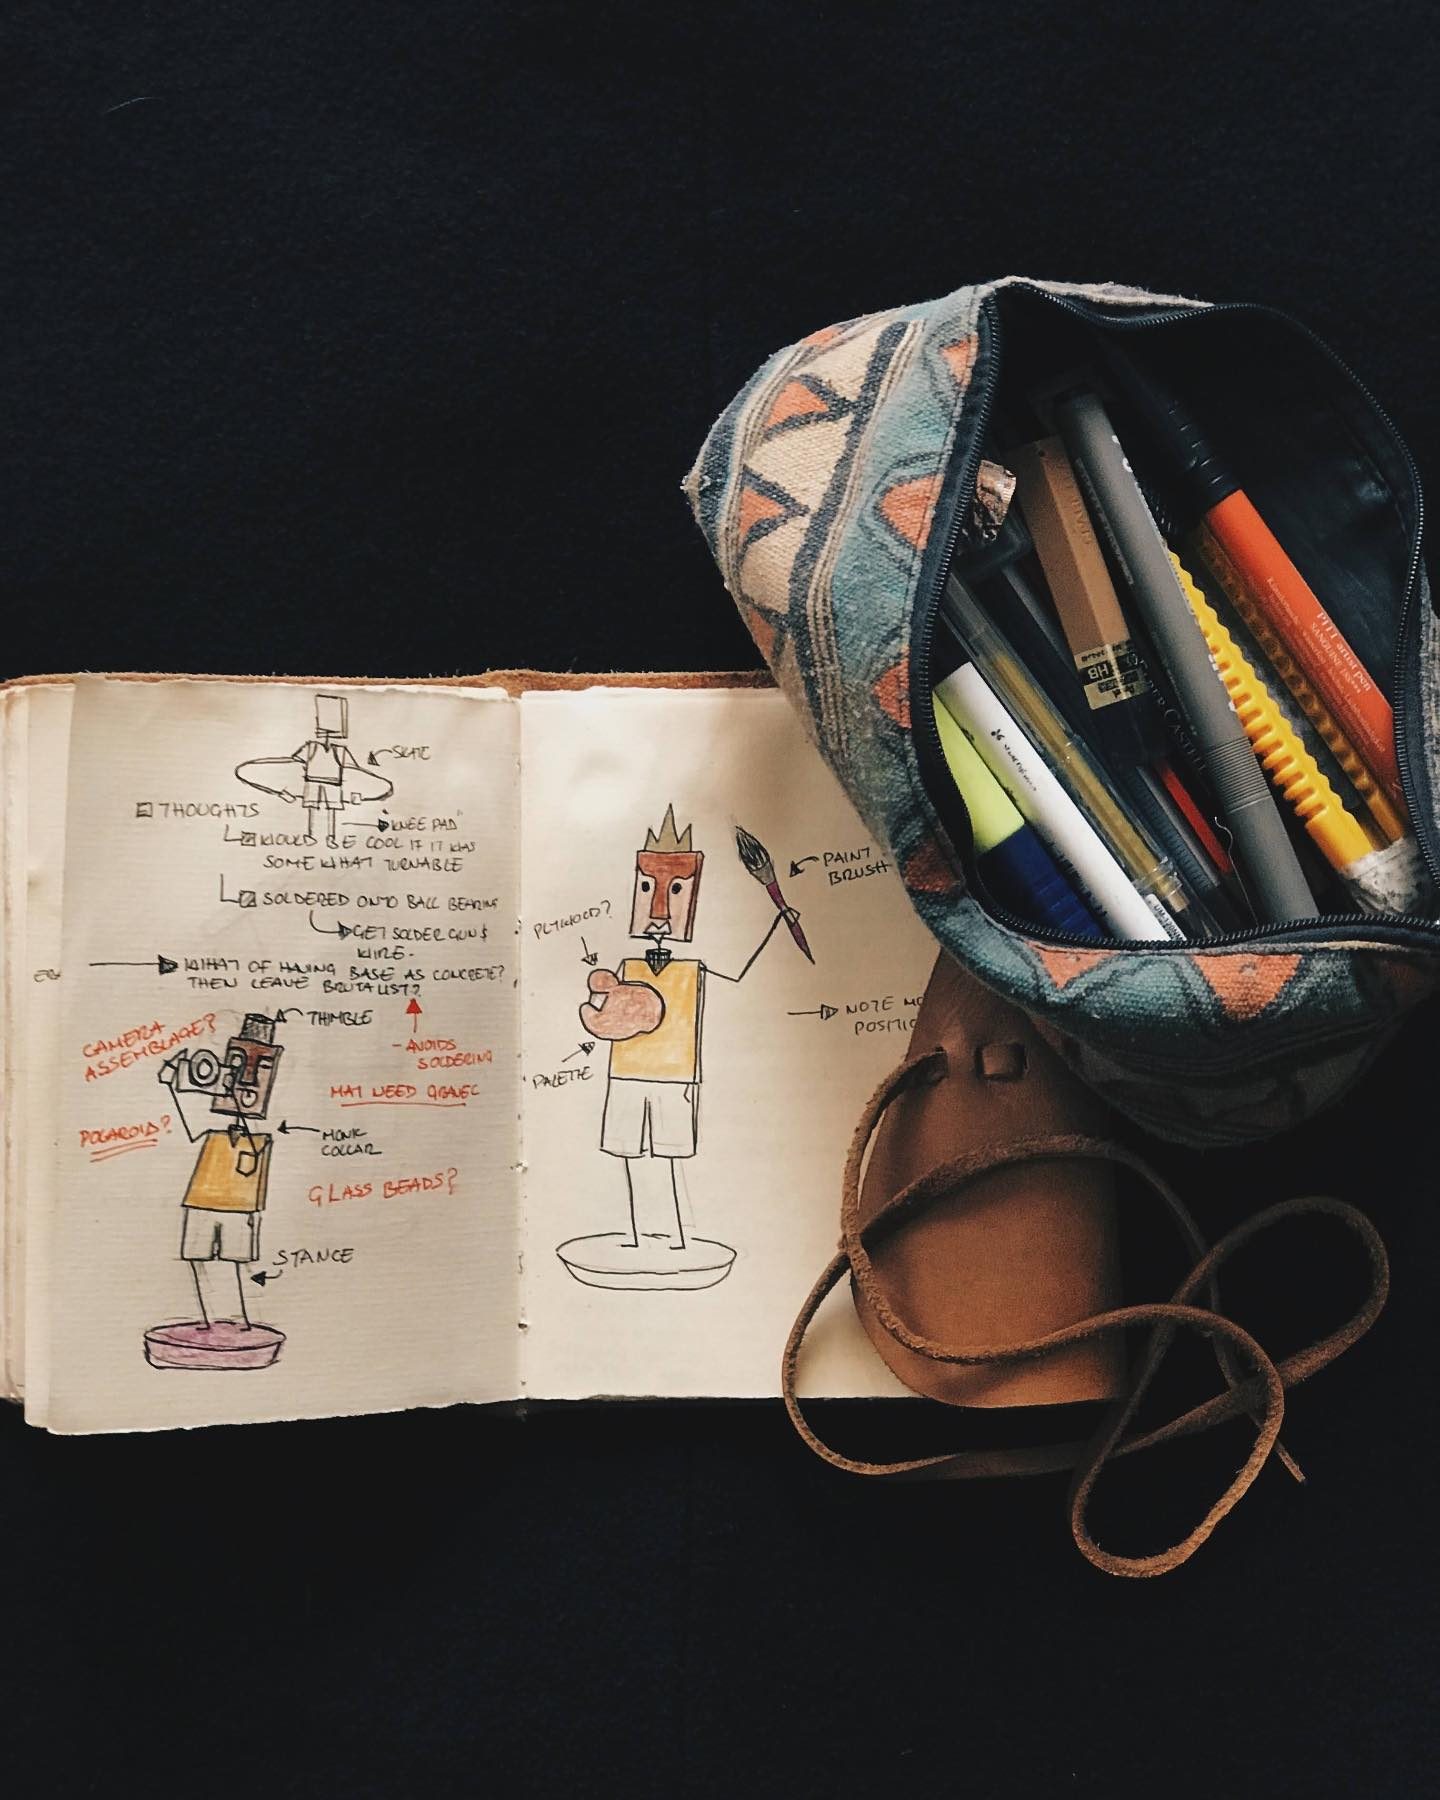 SKATE
THOUGHTS
"KNEE PAD"
WOULD BE COOL IF IT WAS
SOMEWHAT TURNABLE
SOLDERED ONTO BALL BEARING
GET SOLDER GUN &
WIRE.
WHAT OF HAVING BASE AS CONCRETE?
THEN LEAVE BRUTALIST?
THIMBLE
CAMERA
ASSEMBLAGE?
- AVOIDS
SOLDERING
MAY NEED GRAVEL
POLAROID?
MONK
COLLAR
GLASS BEADS?
STANCE
PLYWOOD?
PAINT
BRUSH
PALETTE
NOTE
HB
PITT artist pen
SANGUINE
CASTELL